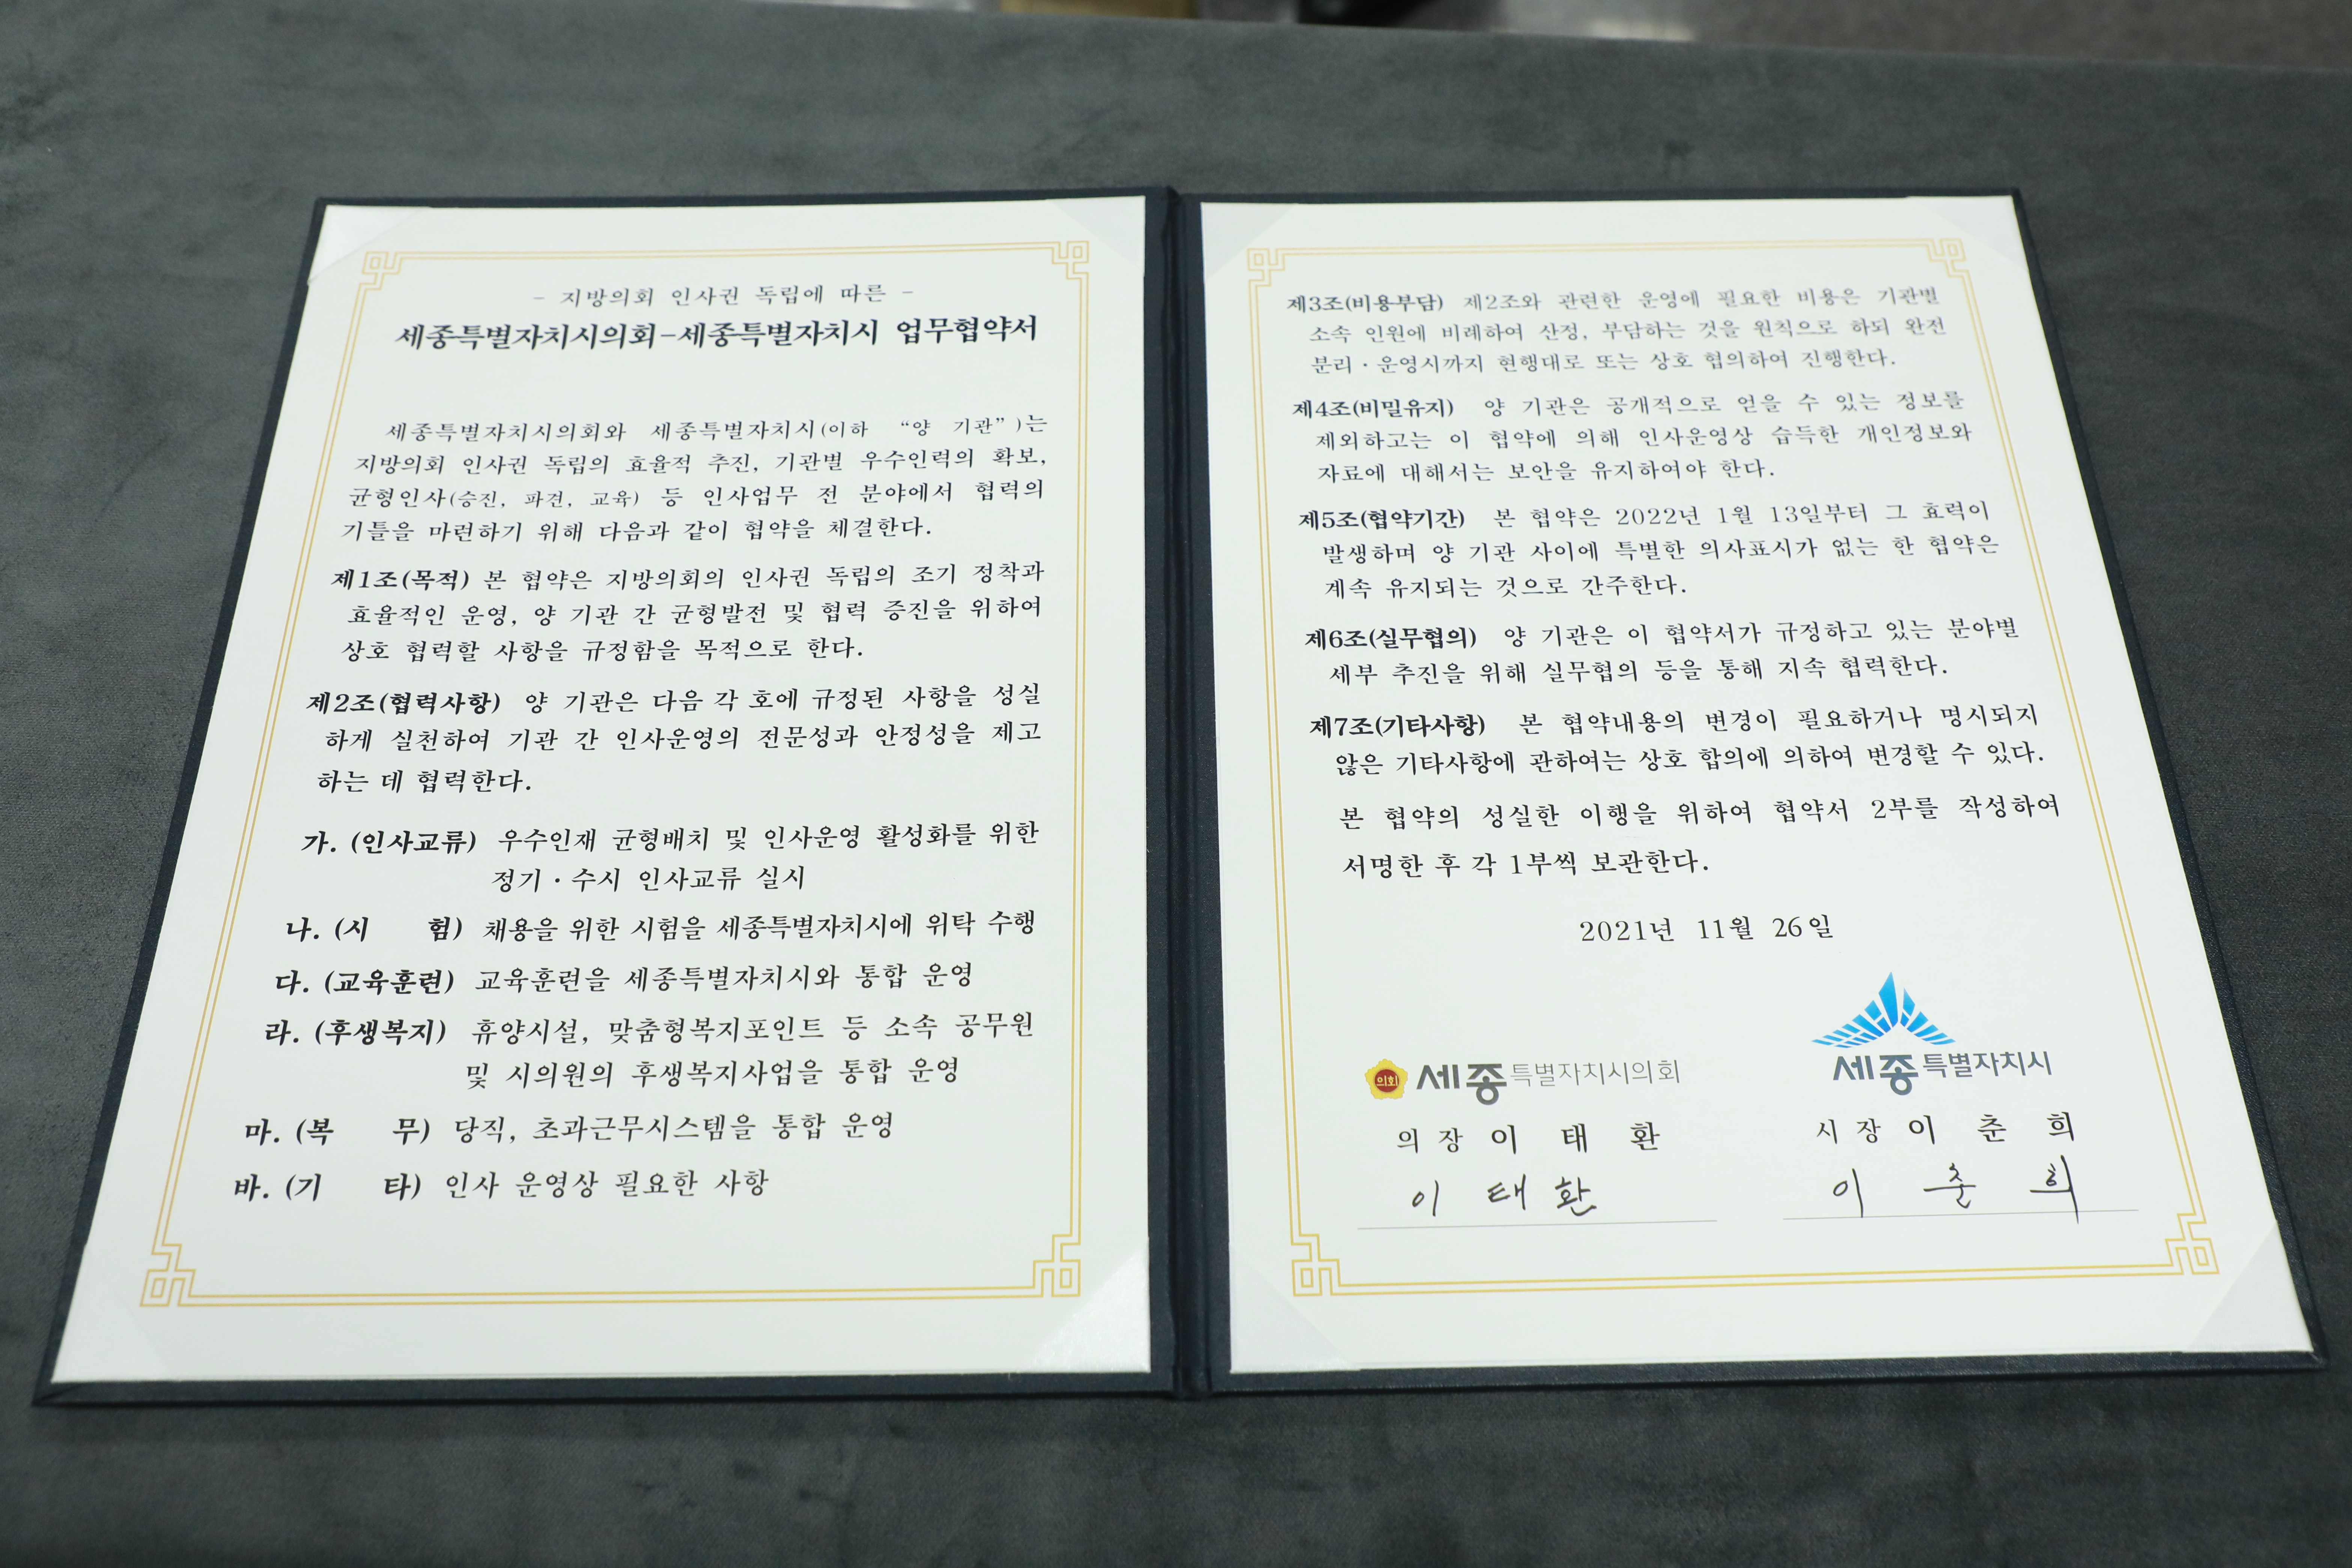 - 지방의회 인사권 독립에 따른 -
세종특별자치시의회-세종특별자치시 업무협약서
세종특별자치시의회와 세종특별자치시(이하 “양 기관”)는
지방의회 인사권 독립의 효율적 추진, 기관별 우수인력의 확보,
균형인사(승진, 파견, 교육) 등 인사업무 전 분야에서 협력의
기틀을 마련하기 위해 다음과 같이 협약을 체결한다.
제1조(목적) 본 협약은 지방의회의 인사권 독립의 조기 정착과
효율적인 운영, 양 기관 간 균형발전 및 협력 증진을 위하여
상호 협력할 사항을 규정함을 목적으로 한다.
제2조(협력사항) 양 기관은 다음 각 호에 규정된 사항을 성실
하게 실천하여 기관 간 인사운영의 전문성과 안정성을 제고
하는 데 협력한다.
가. (인사교류) 우수인재 균형배치 및 인사운영 활성화를 위한
정기·수시 인사교류 실시
나. (시 험) 채용을 위한 시험을 세종특별자치시에 위탁 수행
다. (교육훈련) 교육훈련을 세종특별자치시와 통합 운영
라. (후생복지) 휴양시설, 맞춤형복지포인트 등 소속 공무원
및 시의원의 후생복지사업을 통합 운영
마. (복 무) 당직, 초과근무시스템을 통합 운영
바. (기 타) 인사 운영상 필요한 사항
제3조(비용부담) 제2조와 관련한 운영에 필요한 비용은 기관별
소속 인원에 비례하여 산정, 부담하는 것을 원칙으로 하되 완전
분리·운영시까지 현행대로 또는 상호 협의하여 진행한다.
제4조(비밀유지) 양 기관은 공개적으로 얻을 수 있는 정보를
제외하고는 이 협약에 의해 인사운영상 습득한 개인정보와
자료에 대해서는 보안을 유지하여야 한다.
제5조(협약기간) 본 협약은 2022년 1월 13일부터 그 효력이
발생하며 양 기관 사이에 특별한 의사표시가 없는 한 협약은
계속 유지되는 것으로 간주한다.
제6조(실무협의) 양 기관은 이 협약서가 규정하고 있는 분야별
세부 추진을 위해 실무협의 등을 통해 지속 협력한다.
제7조(기타사항) 본 협약내용의 변경이 필요하거나 명시되지
않은 기타사항에 관하여는 상호 합의에 의하여 변경할 수 있다.
본 협약의 성실한 이행을 위하여 협약서 2부를 작성하여
서명한 후 각 1부씩 보관한다.
2021년 11월 26일
의회 세종특별자치시의회
의 장 이 태 환
이 태 환
세종특별자치시
시 장 이 춘 희
이 춘 희